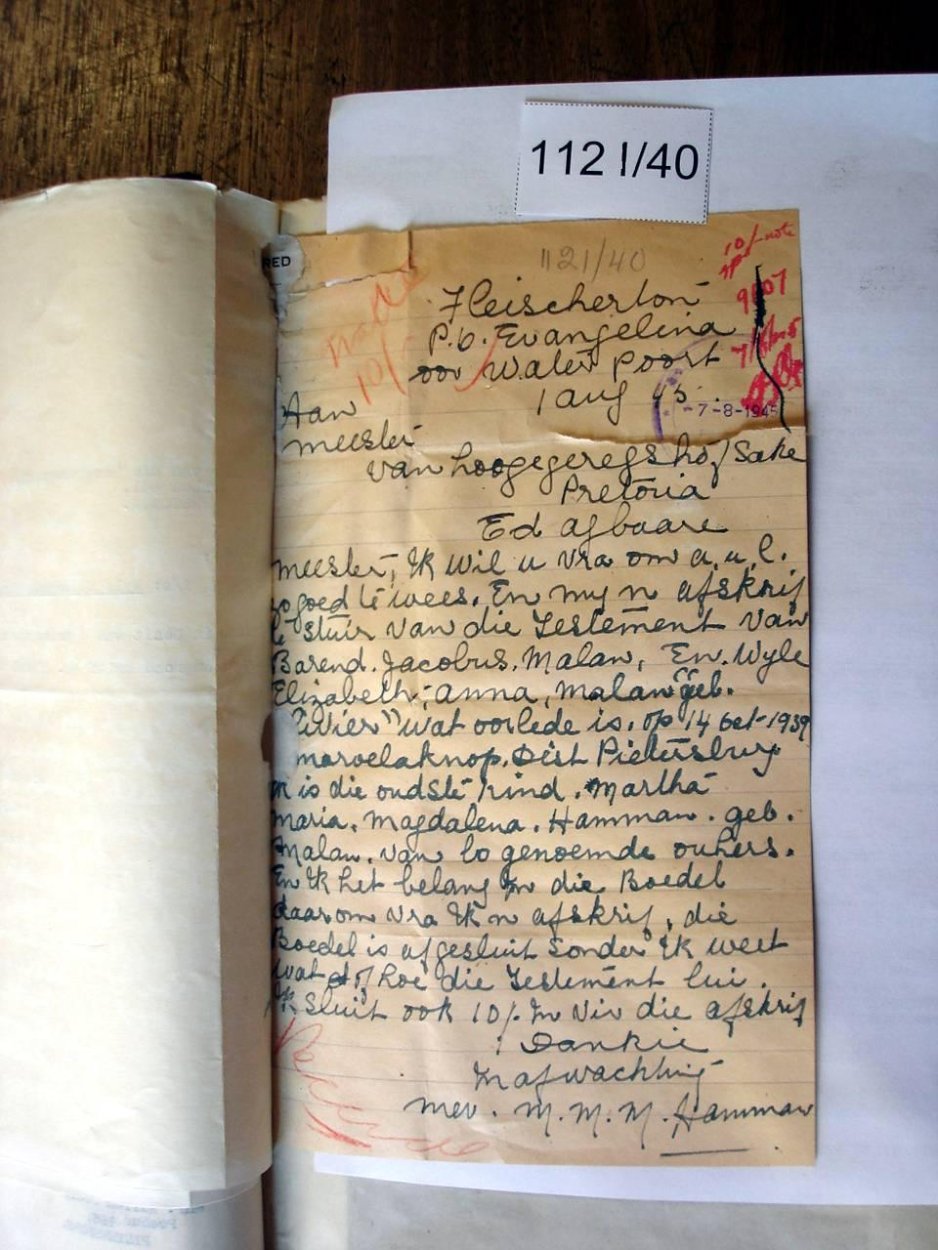 112 I/40
RED
1121/40
10/- note
9607
Fleischerton
P.b. Evangelina
oor Water Poort
1 aug 45.
-7-8-1945
Aan
meester
van hoogegeregshof Sake
Pretoria
Ed agbaare
meester, Ek wil u vra om a.u.l.
zo goed te wees. En my n afskrif
te stuir van die Testement van
Barend. Jacobus. Malan, En. Wyle
Elizabeth, anna, malan "geb.
Vivier" wat oorlede is. op 14 oct-1939
maroelaknop. Dist Pietersburg
is die oudste kind. Martha
maria. Magdalena. Hamman. geb.
Malan. van bo genoemde ouhers.
En Ek het belang In die Boedel
daarom vra Ek n afskrif, die
Boedel is afgesluit sonder Ek weet
wat of Hoe die Testement lui.
Ek Sluit ook 10/. In vir die afskrif
Dankie
In afwachting
mev. M. M. M. Hamman